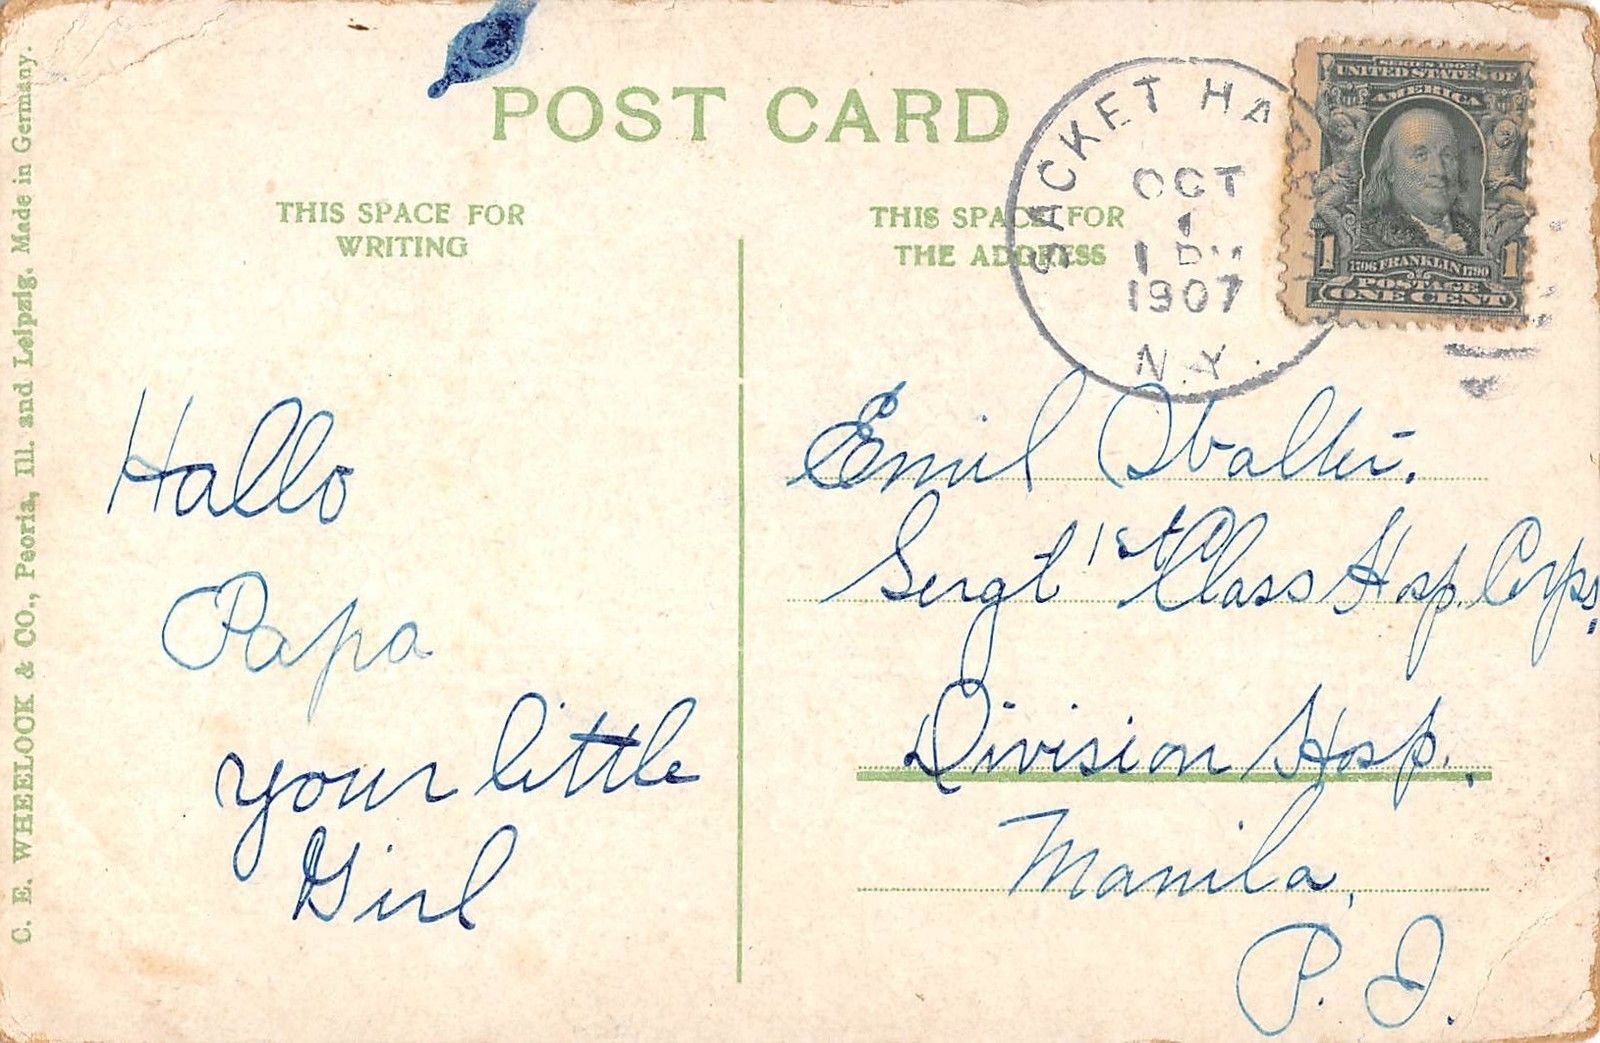 POST CARD
THIS SPACE FOR
WRITING
THIS SPACE FOR
THE ADDRESS
SACKET HA
OCT
1
1 PM
1907
N.Y.
SERIES 1902
UNITED STATES OF
AMERICA
1 1
1706 FRANKLIN 1790
POSTAGE
ONE CENT
Hallo
Papa
your little
Girl
Emil
Sergt 1st Class Hosp. Corps,
Division Hosp.,
Manila,
P. I.
C. E. WHEELOCK & CO., Peoria, Ill. and Leipzig. Made in Germany.